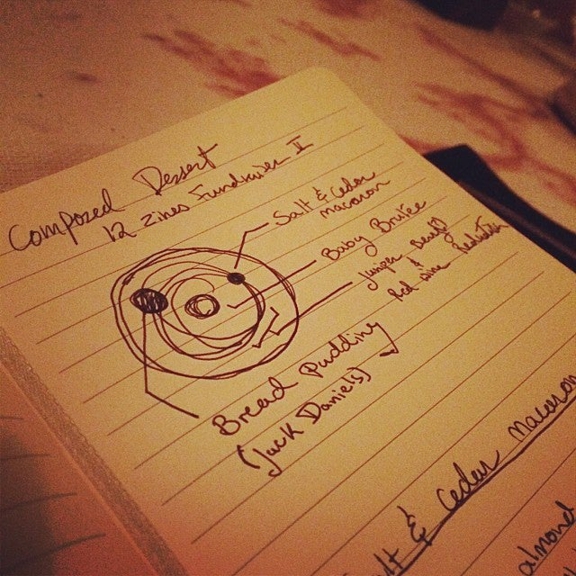 Composed Dessert
12 Zines Fundraiser II
Salt & Cedar
macaron
Baby Brulée
Juniper Berry
&
Red wine Reduction
Bread Pudding
(Jack Daniels)
lt & Cedar macaron
almond